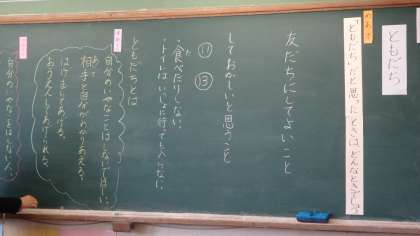 ともだち
「ともだち」だと思ったときは、どんなときでしょう
友だちにしてよいこと
しておかしいと思うこと
⑪ ⑬
・食べたりしない。
・トイレはいっしょに行っても入らない。
ともだちとは
自分のいやなことはしないでほしい。
相手と自分がわかりあえる。
はげましてあげる。
おうえんしてあげられる。